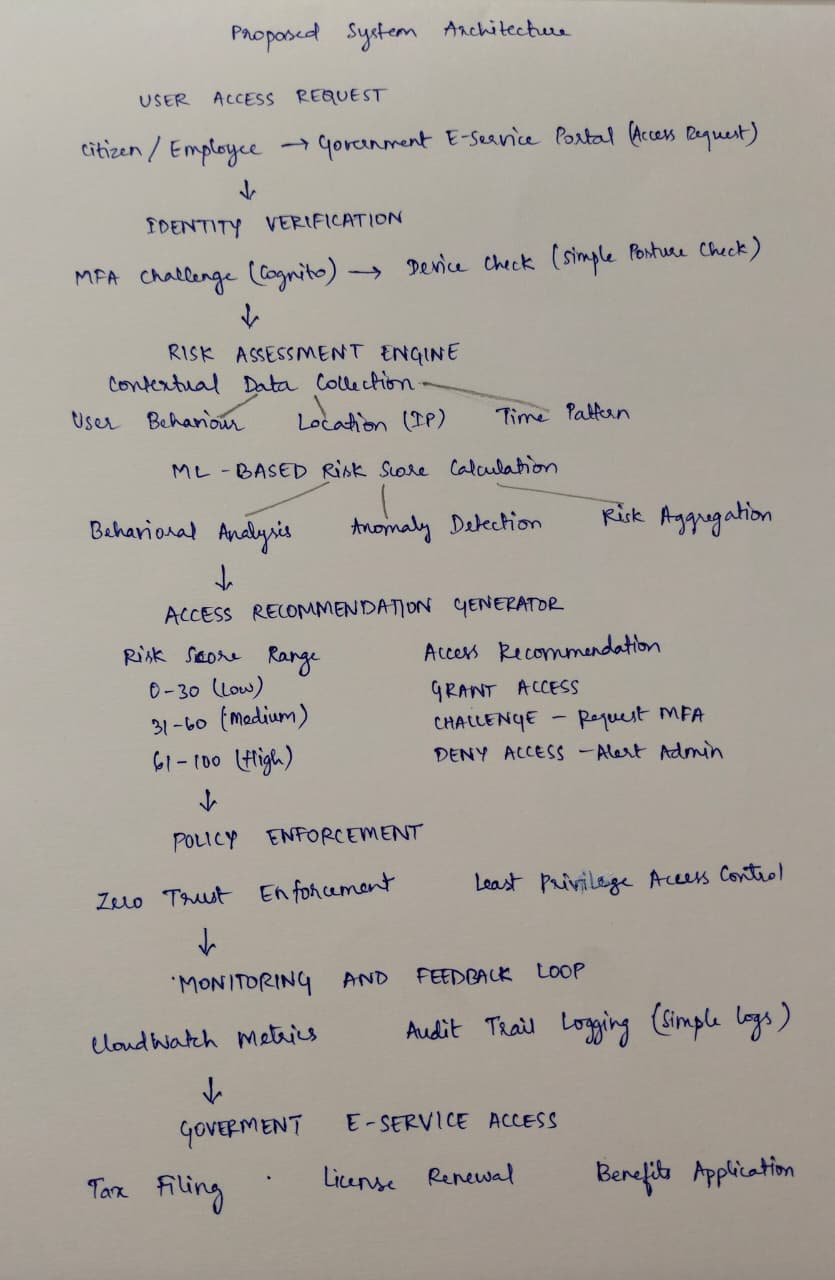 Proposed System Architecture
USER ACCESS REQUEST
Citizen / Employee → Government E-Service Portal (Access Request)
↓
IDENTITY VERIFICATION
MFA Challenge (Cognito) → Device Check (Simple Posture Check)
↓
RISK ASSESSMENT ENGINE
Contextual Data Collection
User Behaviour Location (IP) Time Pattern
ML-BASED Risk Score Calculation
Behavioral Analysis Anomaly Detection Risk Aggregation
↓
ACCESS RECOMMENDATION GENERATOR
Risk Score Range Access Recommendation
0-30 (Low) GRANT ACCESS
31-60 (Medium) CHALLENGE - Request MFA
61-100 (High) DENY ACCESS - Alert Admin
↓
POLICY ENFORCEMENT
Zero Trust Enforcement Least Privilege Access Control
↓
MONITORING AND FEEDBACK LOOP
CloudWatch Metrics Audit Trail Logging (Simple Logs)
↓
GOVERMENT E-SERVICE ACCESS
Tax Filing License Renewal Benefits Application